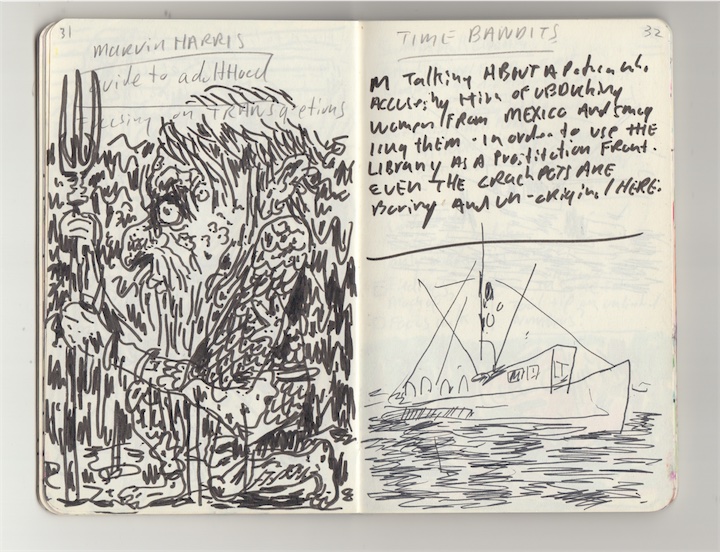 31
MARVIN HARRIS
guide to adultHood
Focusing on TRANSgretions
TIME BANDITS
32
M Talking ABOUT A Patron who
Accusing Him of UBDUcting
Women From MEXICO And smug
ling them. In order to use THE
Library As a Prostitution Front.
EVEN THE CrackPOTS ARE
Boring And un-original HERE.